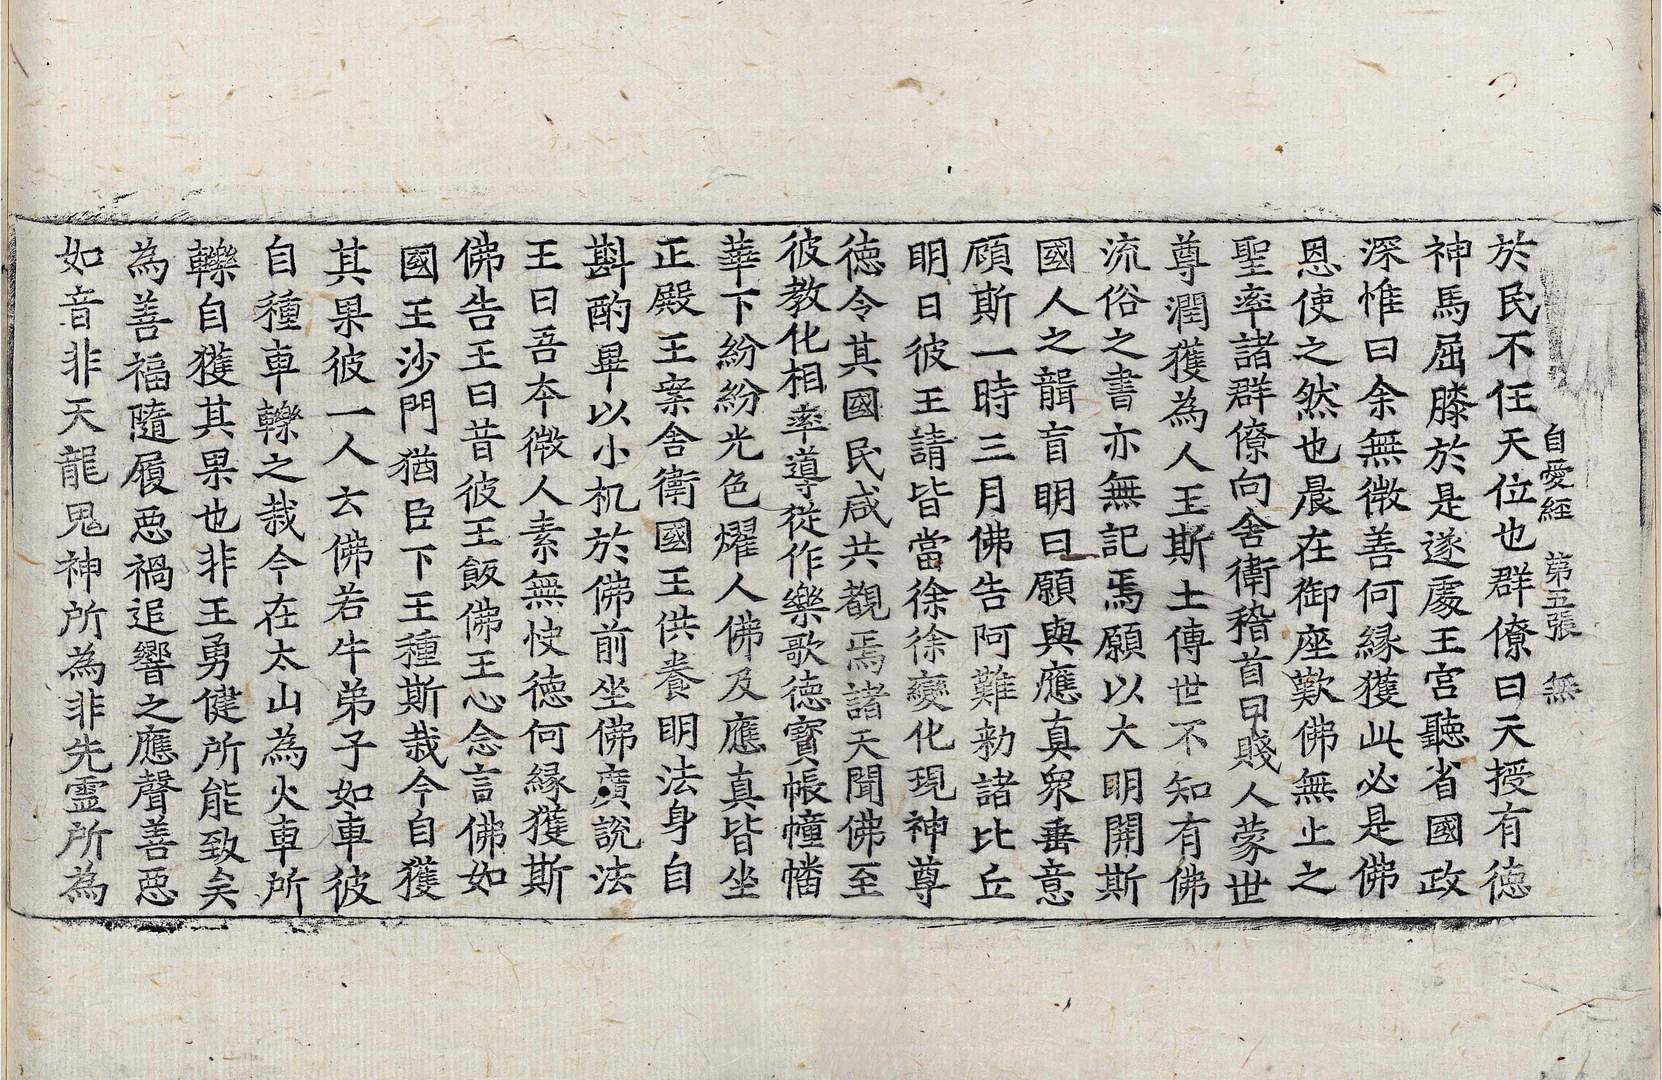 自愛經 第五張 無
於民不任天位也群僚曰天授有德
神馬屈膝於是遂處王宮聽省國政
深惟曰余無微善何縁獲此必是佛
恩使之然也晨在御座歎佛無止之
聖率諸群僚向舍衛稽首曰賤人蒙世
尊潤獲為人王斯土傳世不知有佛
流俗之書亦無記焉願以大明開斯
國人之聾盲明曰願與應真衆垂意
頋斯一時三月佛告阿難勑諸比丘
明日彼王請皆當徐徐變化現神尊
德令其國民咸共觀焉諸天聞佛至
彼教化相率導從作樂歌德寶帳幢幡
華下紛紛光色燿人佛及應真皆坐
正殿王案舍衛國王供養明法身自
斟酌畢以小机於佛前坐佛廣説法
王曰吾本微人素無快德何縁獲斯
佛告王曰昔彼王飯佛王心念言佛如
國王沙門猶臣下王種斯栽今自獲
其果彼一人云佛若牛弟子如車彼
自種車轢之栽今在太山為火車所
轢自獲其果也非王勇健所能致矣
為善福隨履惡禍追響之應聲善惡
如音非天龍鬼神所為非先靈所為